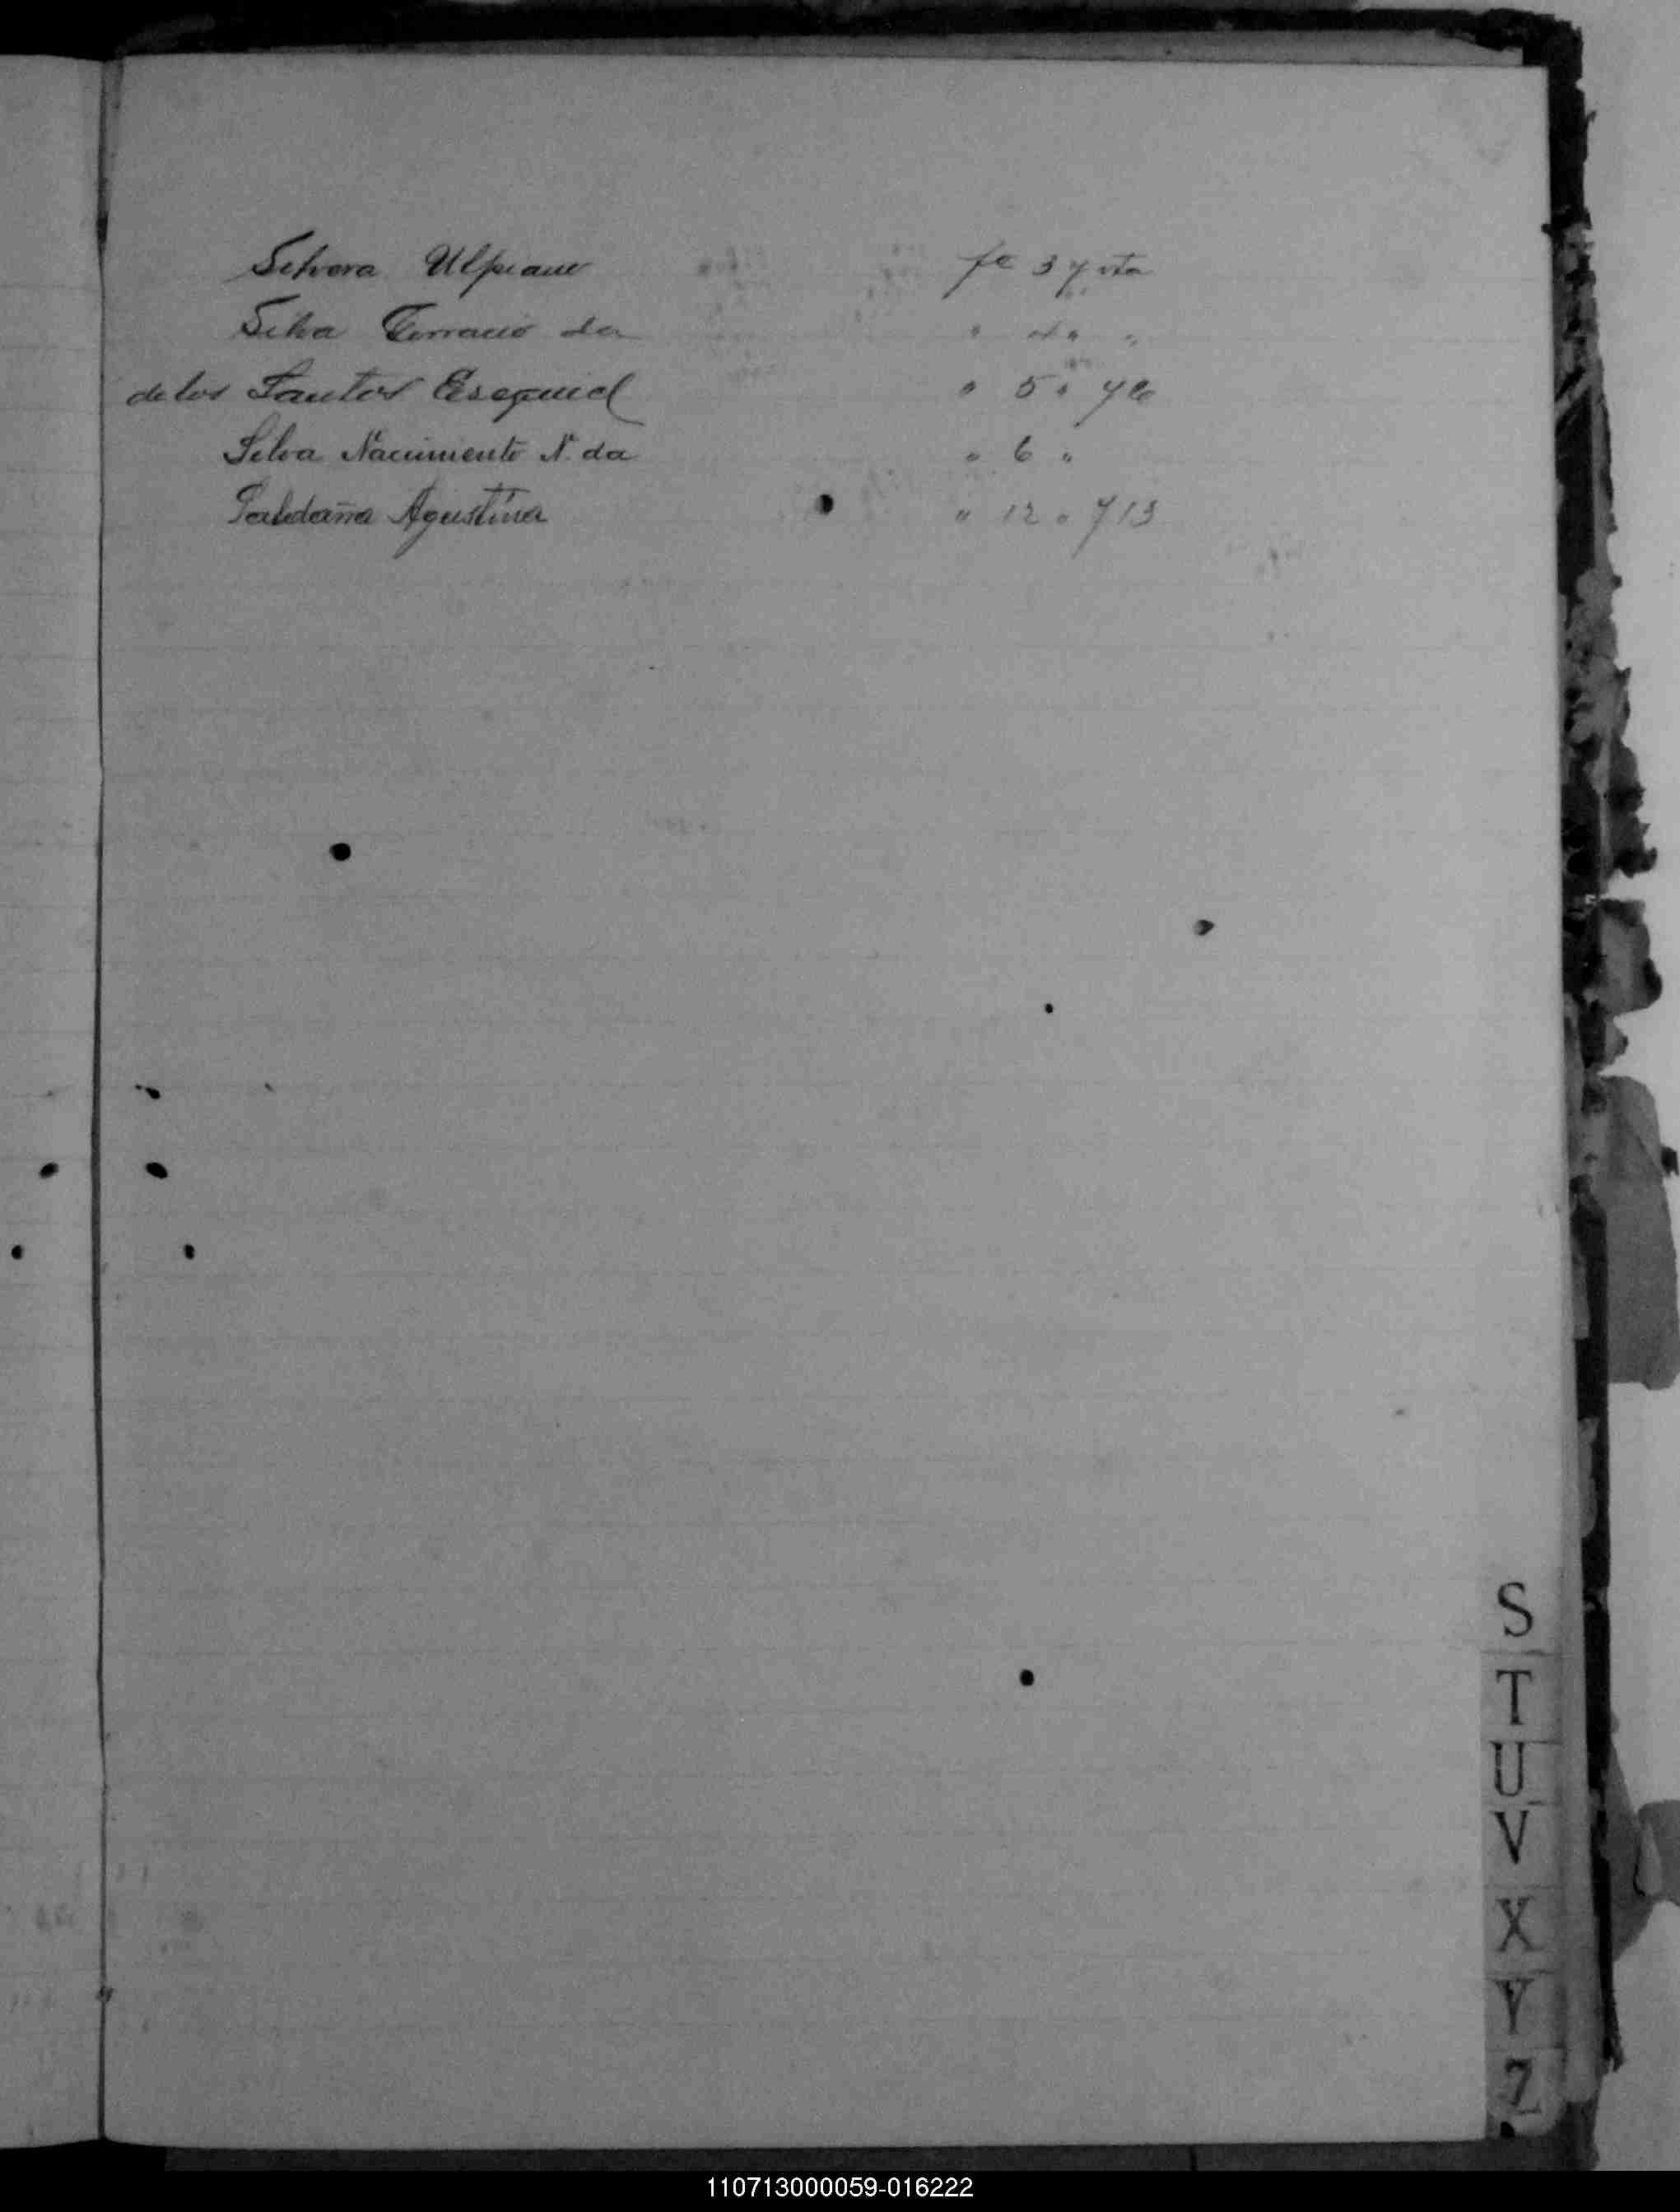 Silvera Ulpiano fº 3 y vta
Silva da " 4 " "
de los Santos Esequiel " 5 " y 6
Silva Nacimiento N. da " 6 "
Saldaña Agustina " 12 " y 13
S
T
U
V
X
Y
Z
110713000059-016222